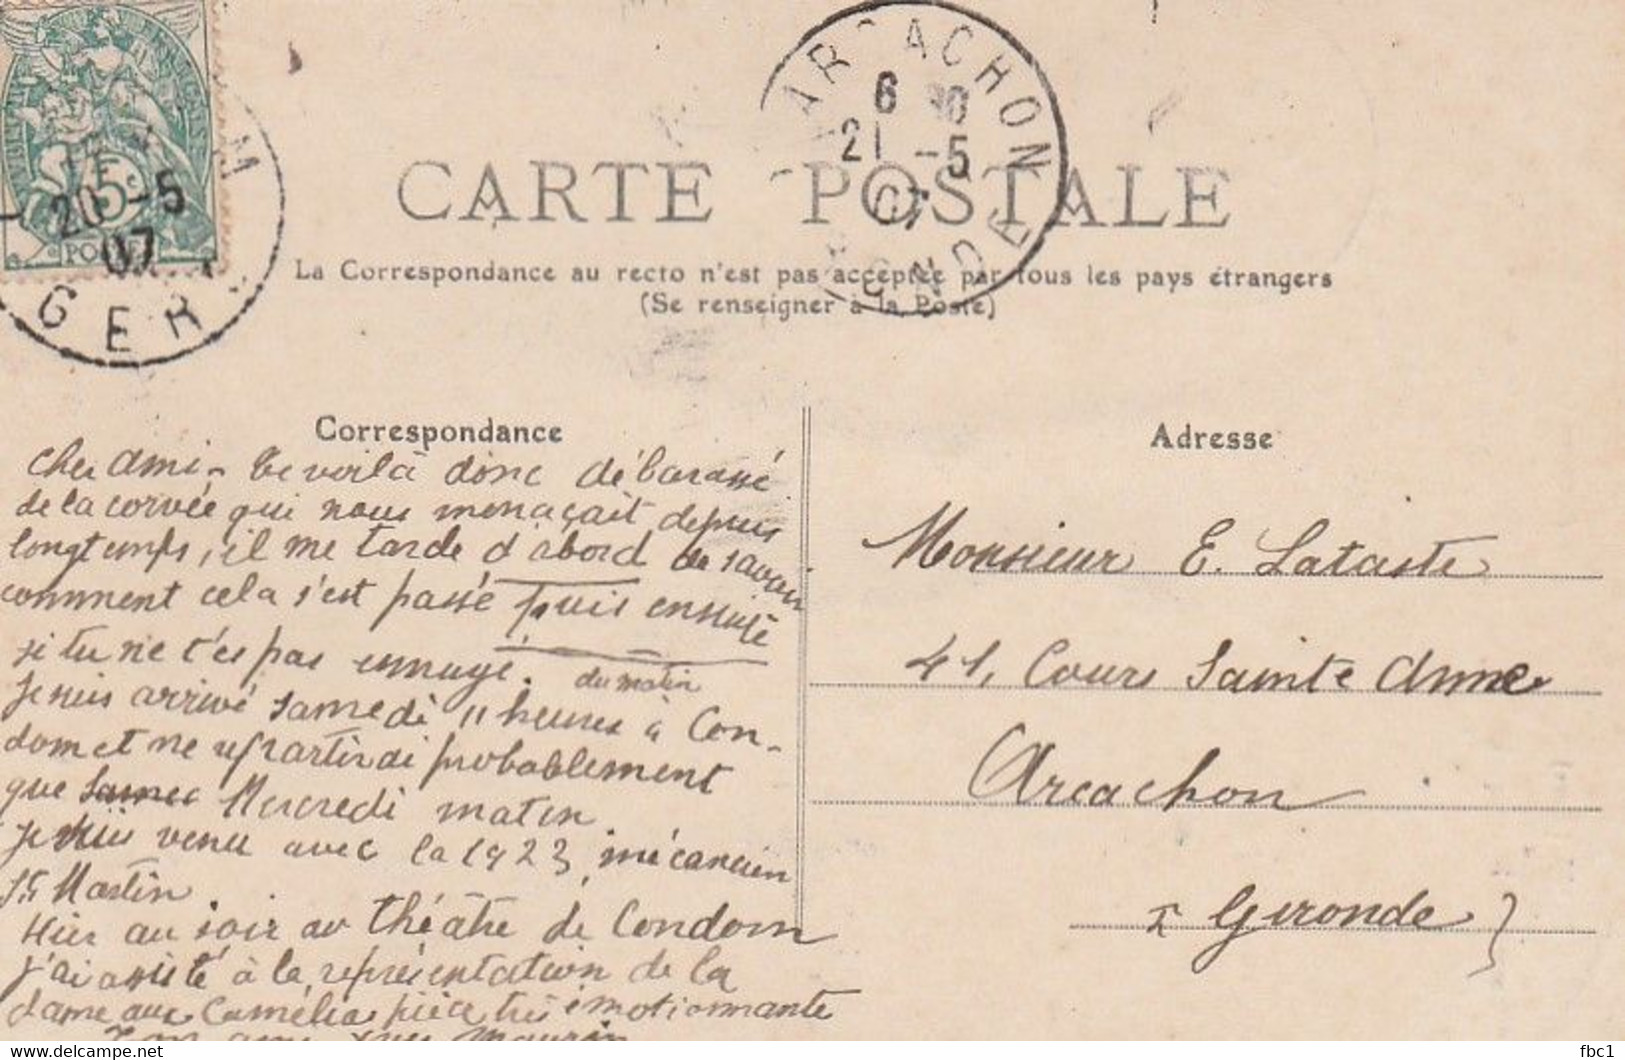 ARCACHON
6 30
21 -5
07
GIRONDE
5c
POSTES
20 -5
07
GERS
CARTE POSTALE
La Correspondance au recto n'est pas acceptée par tous les pays étrangers
(Se renseigner à la Poste)
Correspondance
Cher Ami - te voilà donc débarassé
de la corvée qui nous menaçait depuis
longtemps, il me tarde d'abord de savoir
comment cela s'est passé puis ensuite
si tu ne t'es pas ennuyé.
du matin
Je suis arrivé samedi 11 heures à Con-
dom et ne repartirai probablement
que Mercredi matin.
Je suis venu avec la 1923, mécanicien
St Martin.
Hier au soir au théâtre de Condom
j'ai assisté à la représentation de la
dame aux Camélia pièce très émotionnante
Ton ami Maurin
Adresse
Monsieur E. Lataste
41, Cours Sainte Anne
Arcachon
Gironde
delcampe.net
fbc1